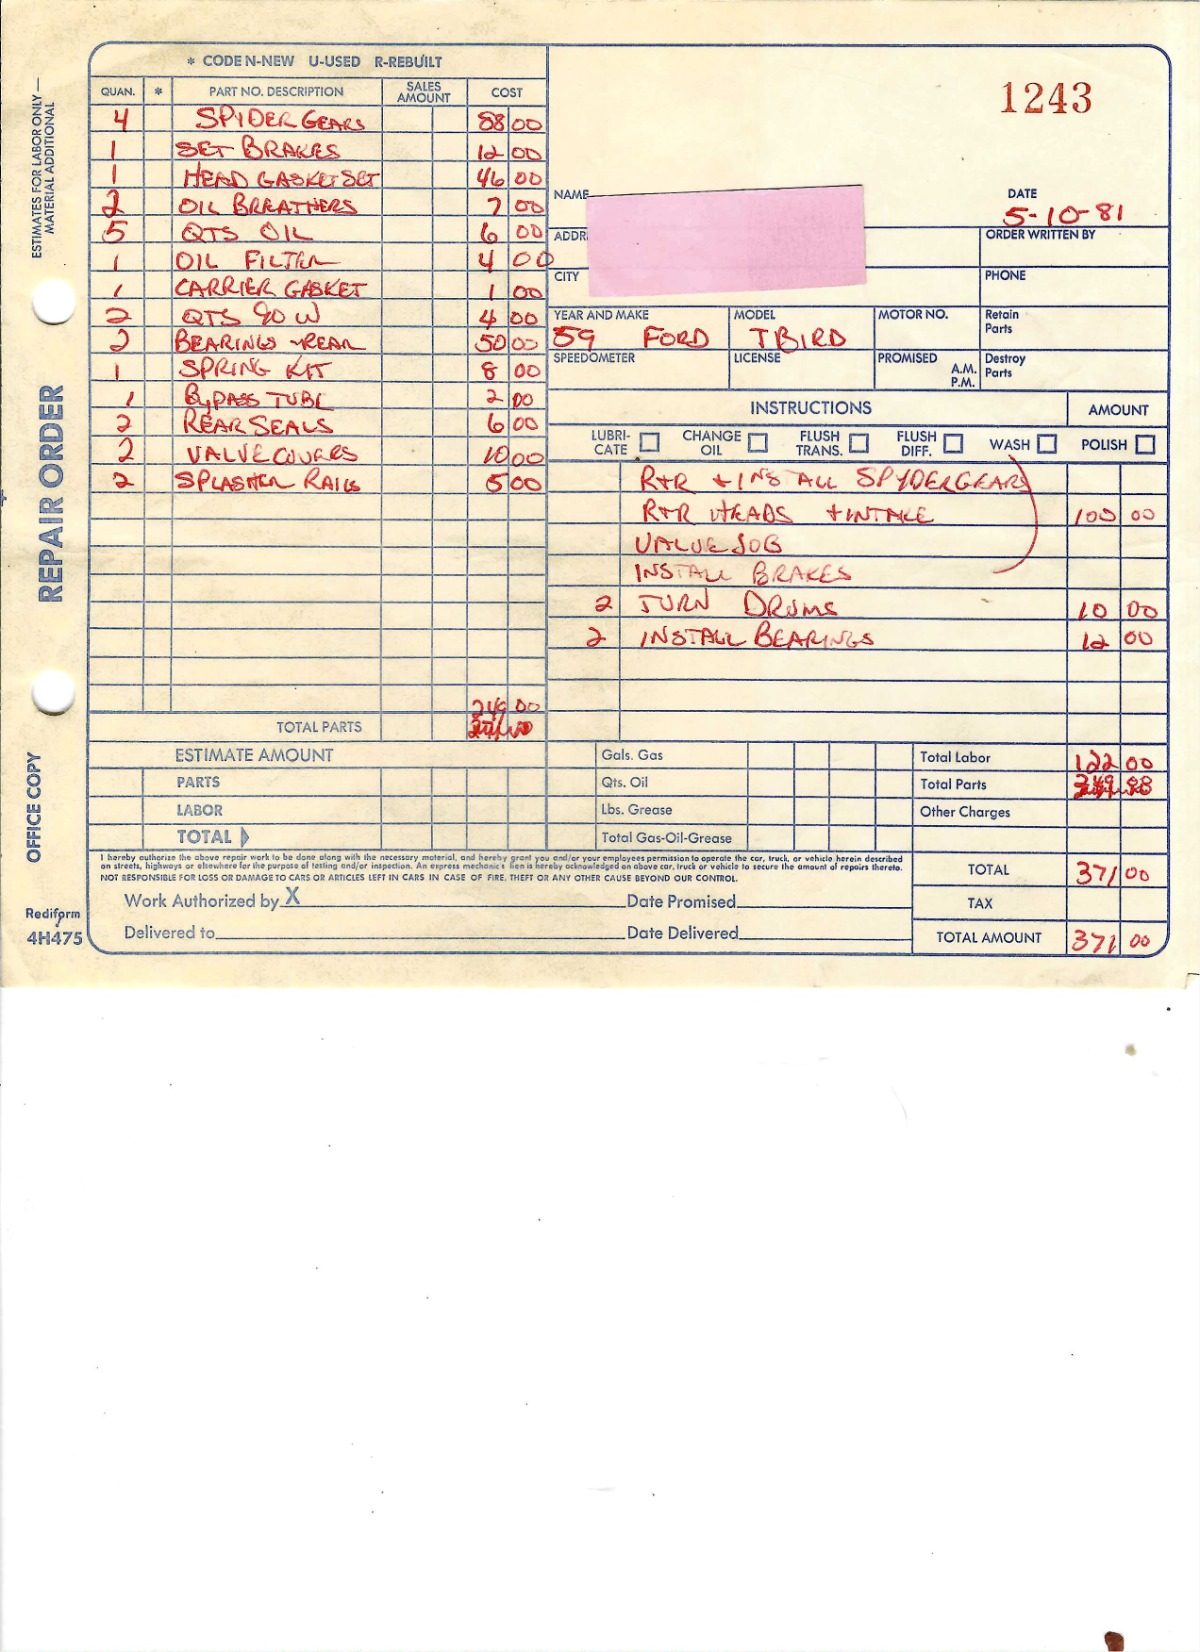 * CODE N-NEW U-USED R-REBUILT
QUAN. * PART NO. DESCRIPTION SALES AMOUNT COST
4 SPIDER GEARS 88 00
1 SET BRAKES 12 00
1 HEAD GASKET SET 46 00
2 OIL BREATHERS 7 00
5 QTS OIL 6 00
1 OIL FILTER 4 00
1 CARRIER GASKET 1 00
2 QTS 90 W 4 00
2 BEARINGS - REAR 50 00
1 SPRING KIT 8 00
1 BYPASS TUBE 2 00
2 REAR SEALS 6 00
2 VALVE COVERS 10 00
2 SPLASHER RAILS 5 00
249 00
TOTAL PARTS
ESTIMATE AMOUNT
PARTS
LABOR
TOTAL
1243
NAME
DATE
5-10-81
ADDR
ORDER WRITTEN BY
CITY
PHONE
YEAR AND MAKE MODEL MOTOR NO. Retain Parts
59 FORD TBIRD
SPEEDOMETER LICENSE PROMISED A.M. P.M. Destroy Parts
INSTRUCTIONS AMOUNT
LUBRI-CATE CHANGE OIL FLUSH TRANS. FLUSH DIFF. WASH POLISH
R+R + INSTALL SPYDERGEARS
R+R HEADS + INTAKE 100 00
VALVE JOB
INSTALL BRAKES
2 TURN DRUMS 10 00
2 INSTALL BEARINGS 12 00
Gals. Gas
Qts. Oil
Lbs. Grease
Total Gas-Oil-Grease
Total Labor 122 00
Total Parts
Other Charges
TOTAL 371 00
TAX
TOTAL AMOUNT 371 00
I hereby authorize the above repair work to be done along with the necessary material, and hereby grant you and/or your employees permission to operate the car, truck, or vehicle herein described
on streets, highways or elsewhere for the purpose of testing and/or inspection. An express mechanics lien is hereby acknowledged on above car, truck or vehicle to secure the amount of repairs thereto.
NOT RESPONSIBLE FOR LOSS OR DAMAGE TO CARS OR ARTICLES LEFT IN CARS IN CASE OF FIRE, THEFT OR ANY OTHER CAUSE BEYOND OUR CONTROL.
Work Authorized by X Date Promised
Delivered to Date Delivered
ESTIMATES FOR LABOR ONLY —
MATERIAL ADDITIONAL
REPAIR ORDER
OFFICE COPY
Rediform
4H475